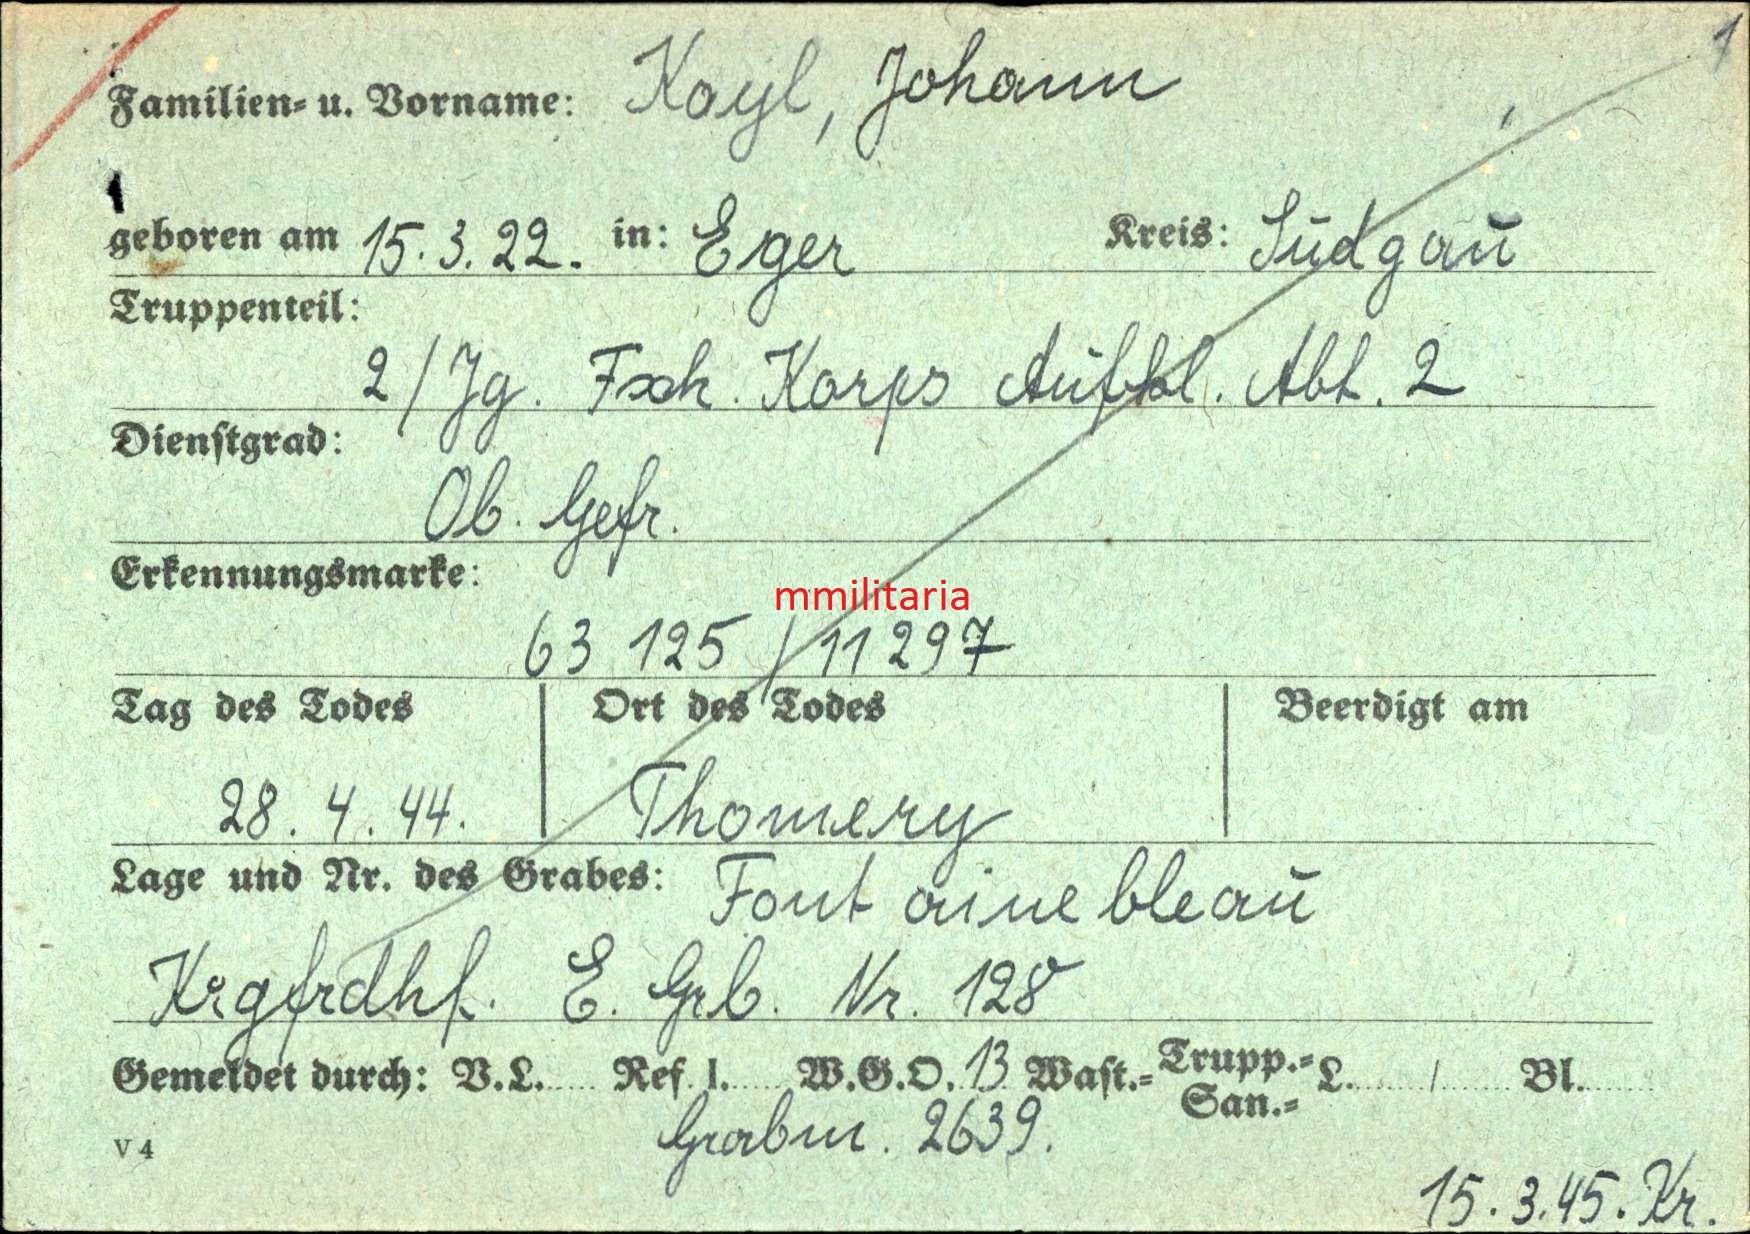 1
Familien- u. Vorname: Kayl, Johann
geboren am 15.3.22. in: Eger Kreis: Sudgau
Truppenteil:
2/Jg. Fsch. Korps Aufkl. Abt. 2
Dienstgrad:
Ob. Gefr.
Erkennungsmarke:
mmilitaria
63 125 / 11297
Tag des Todes Ort des Todes Beerdigt am
28. 4. 44. Thomery
Lage und Nr. des Grabes: Fontainebleau
Krgfrdhf. E. Grb. Nr. 128
Gemeldet durch: V.L. Ref. I. W.G.O. 13 Wast.- Trupp.- San.- L. / Bl.
Grabm. 2639.
V 4
15.3.45. Kr.